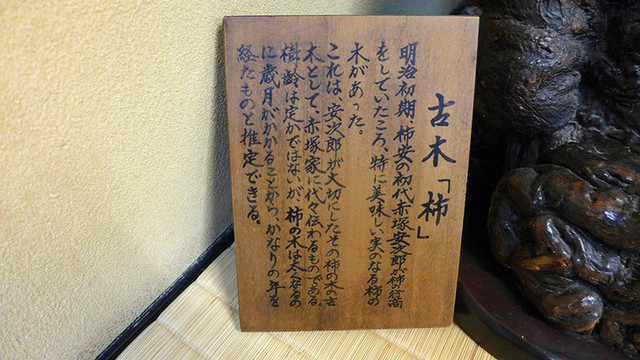 古木「柿」
明治初期、柿安の初代赤塚安次郎が柿の行商
をしていたころ、特に美味しい実のなる柿の
木があった。
これは、安次郎が大切にしたその柿の木の古
木として、赤塚家に代々伝わるものである。
樹齢は定かではないが、柿の木は太くなるの
に歳月がかかることから、かなりの年を
経たものと推定できる。